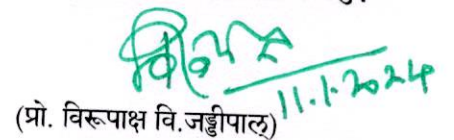 11.1.2024
(प्रो. विरूपाक्ष वि.जड्डीपाल)